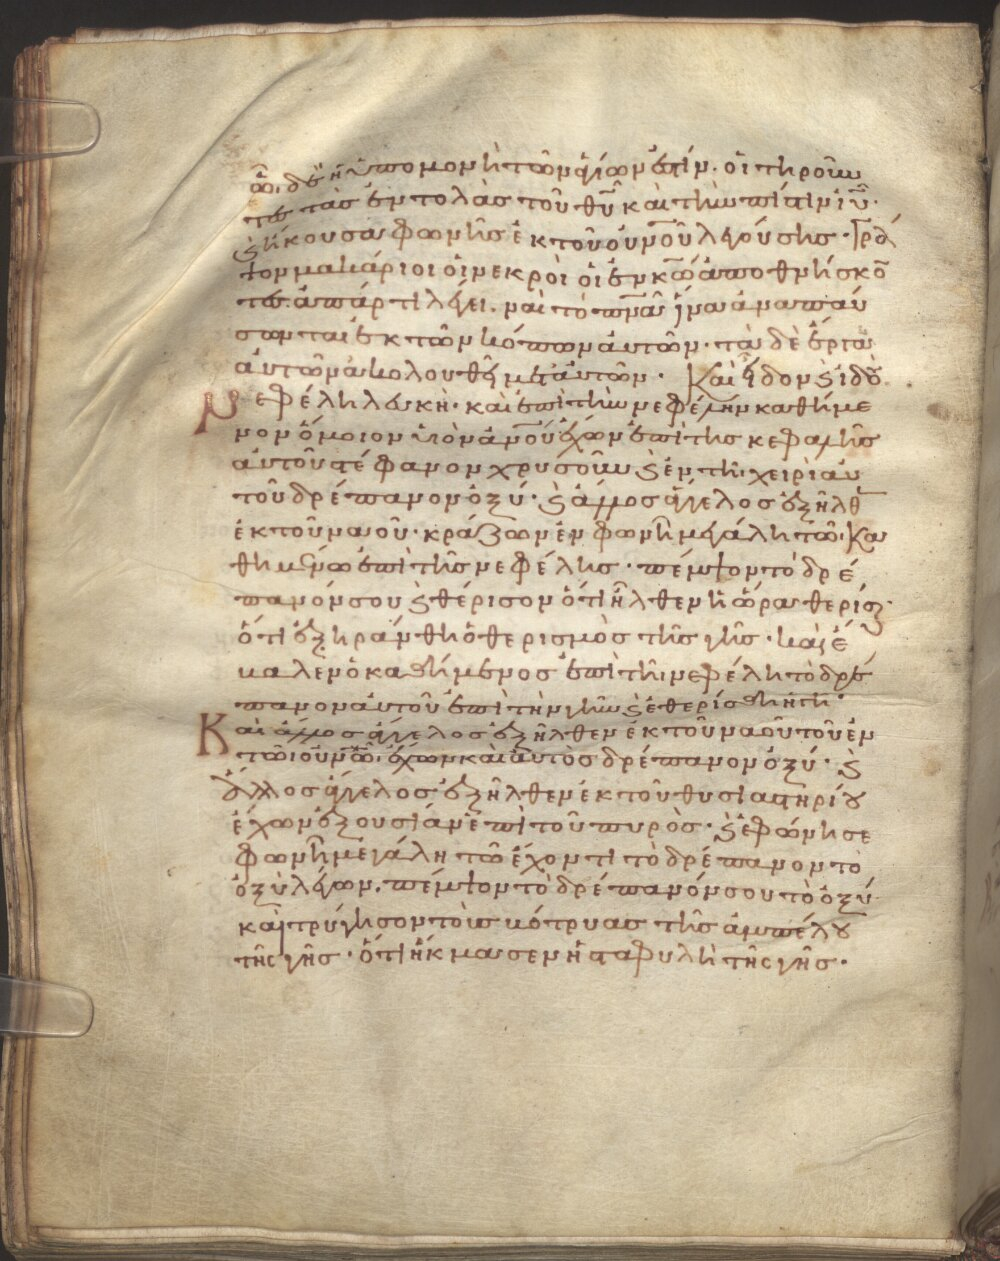 ὧδε ἡ ὑπομονὴ τῶν ἁγίων ἐστίν. οἱ τηροῦν
τες τὰς ἐντολὰς τοῦ θυ καὶ τὴν πίστιν ιυ.
ϛ ἤκουσα φωνῆς ἐκ τοῦ οὐνοῦ λεγούσης. Γρά
ψον μακάριοι οἱ νεκροὶ οἱ ἐν κω ἀποθνήσκο
τες. ἀπάρτι λέγει. ναὶ τὸ πνα ἵνα ἀναπαύ
σωνται ἐκ τῶν κόπων αὐτῶν. τὰ δὲ ἔργα
αὐτῶν ἀκολουθεῖ μετ αὐτῶν. Καὶ ἴδον ϛ ἰδοὺ
Νεφέλη λευκὴ. καὶ ἐπὶ τὴν νεφέλην καθήμε
νον ὅμοιον υἱὸν ἀνου ἔχων ἐπὶ τῆς κεφαλῆς
αὐτοῦ στέφανον χρυσοῦν ϛ ἐν τῇ χειρὶ αυ
τοῦ δρέπανον ὀξύ. ϛ ἄλλος ἄγγελος ἐξῆλθ
ἐκ τοῦ ναοῦ. κράζων ἐν φωνῇ μεγάλη τῶ. Κα
θημένω ἐπὶ τῆς νεφέλης. πέμψον τὸ δρέ
πανόν σου ϛ θέρισον ὅτι ἦλθεν ἡ ὥρα θερίσ
ὅτι ἐξηράνθη ὁ θερισμὸς τῆς γῆς. καὶ ἔ
βαλεν ὁ καθήμενος ἐπὶ τῆ νεφέλη τὸ δρέ
πανον αὐτοῦ ἐπὶ τὴν γῆν ϛ ἐθερίσθη ἡ γῆ.
Καὶ ἄλλος ἄγγελος ἐξῆλθεν ἐκ τοῦ ναοῦ τοῦ ἐν
τῶ οὐνω. ἔχων καὶ αὐτὸς δρέπανον ὀξύ. ϛ
ἄλλος ἄγγελος ἐξῆλθεν ἐκ τοῦ θυσιαστηρίου
ἔχων ἐξουσίαν ἐπὶ τοῦ πυρός. ϛ ἐφώνησε
φωνῇ μεγάλη τῶ ἔχοντι τὸ δρέπανον τὸ
ὀξὺ λέγων. πέμψον τὸ δρέπανόν σου τὸ ὀξύ
καὶ τρύγησον τοὺς βότρυας τῆς ἀμπέλου
τῆς γῆς. ὅτι ἤκμασεν ἡ σταφυλὴ τῆς γῆς.